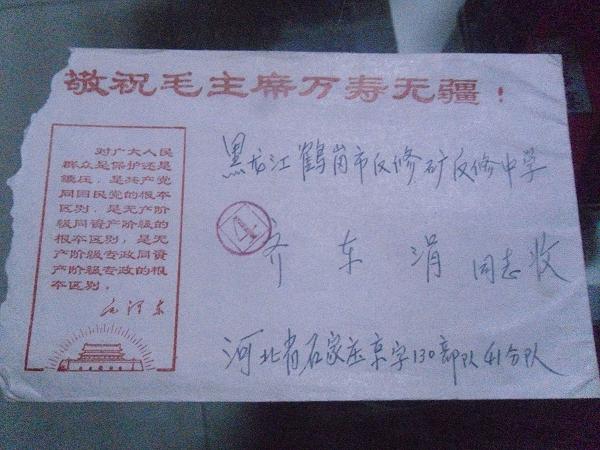 敬祝毛主席万寿无疆!
对广大人民
群众是保护还是
镇压，是共产党
同国民党的根本
区别，是无产阶
级同资产阶级的
根本区别，是无
产阶级专政同资
产阶级专政的根
本区别。
毛泽东
黑龙江鹤岗市反修矿反修中学
4
齐东涓 同志收
河北省石家庄京字130部队41分队